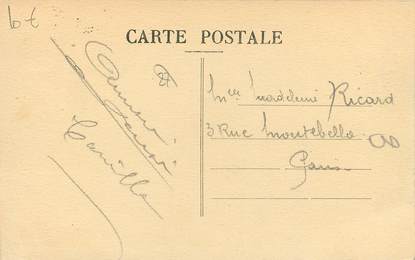 6 €
CARTE POSTALE
Amimé
Camille
Mlle Madeleine Ricard
3 Rue Montebello
Paris